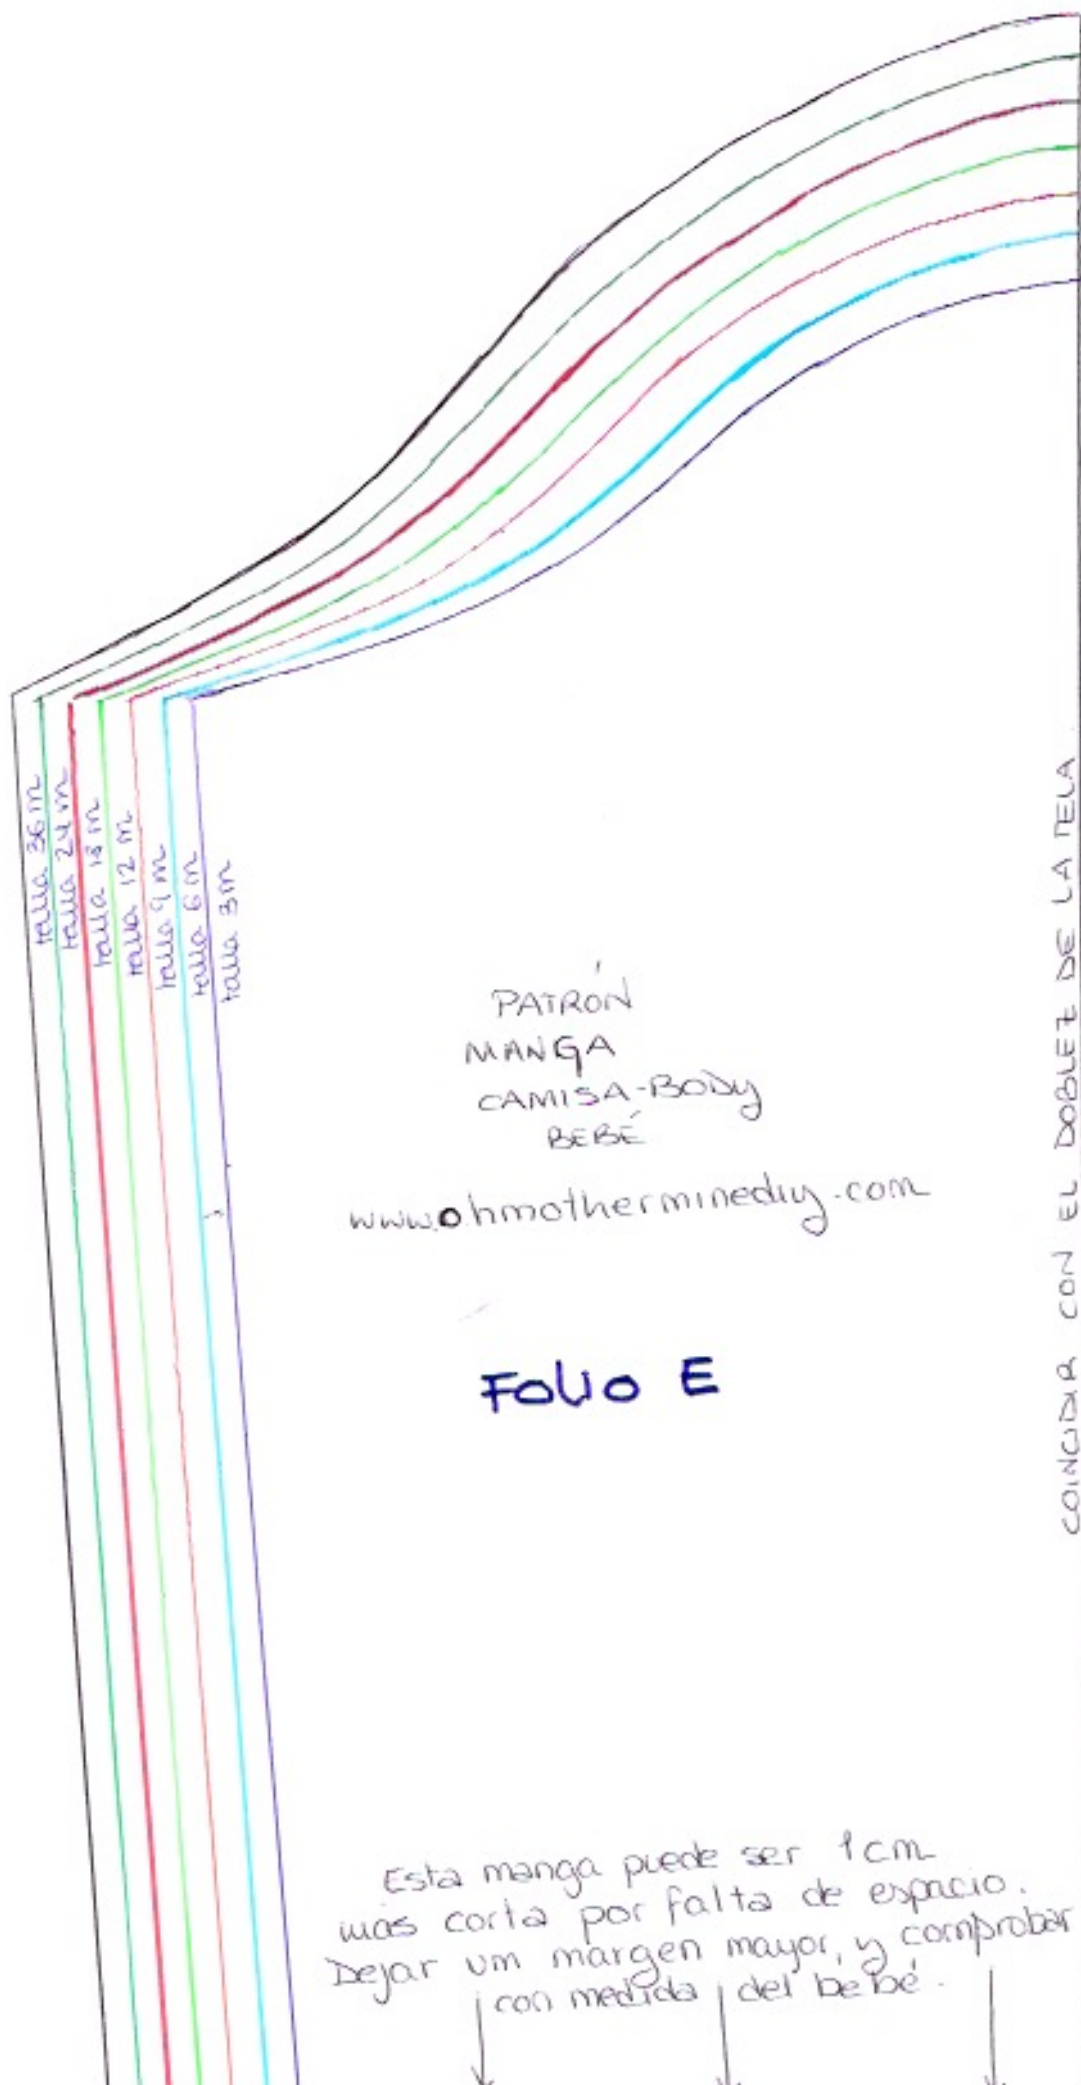 talla 36 m
talla 24 m
talla 18 m
talla 12 m
talla 9 m
talla 6 m
talla 3m
PATRÓN
MANGA
CAMISA-BODY
BEBÉ
www.ohmotherminediy.com
Folio E
COINCIDIR CON EL DOBLEZ DE LA TELA
Esta manga puede ser 1cm
mas corta por falta de espacio.
Dejar um margen mayor, y comprobar
con medida del bebé.